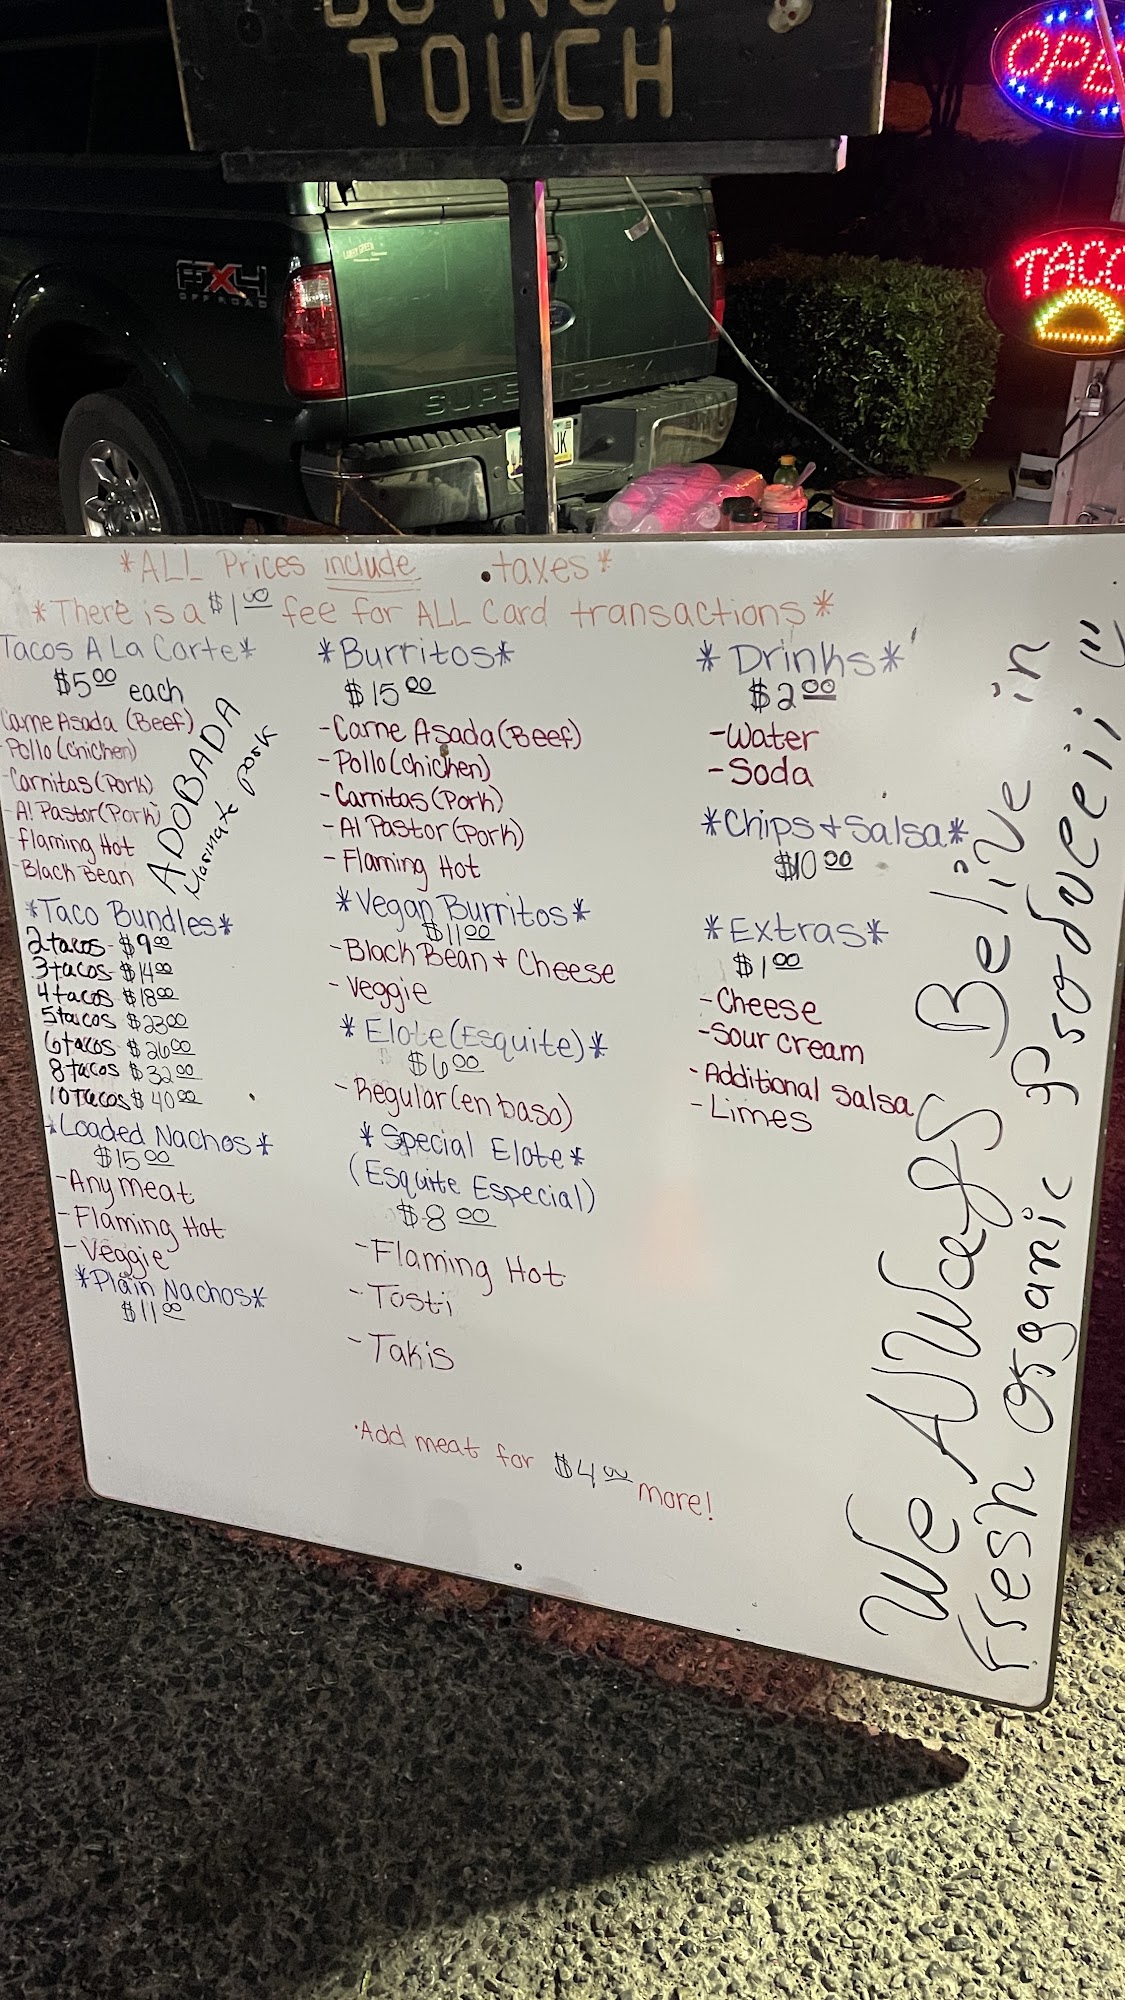 DO NOT
TOUCH
OPE
TACO
FX4
OFF ROAD
SUPER DUTY
Ford
UK
*ALL Prices include .taxes*
*There is a $1.00 fee for ALL Card transactions*
Tacos A La Carte*
$5.00 each
Carne Asada (Beef)
-Pollo (chicken)
-Carnitas (Pork)
-Al Pastor (Pork)
-Flaming Hot
-Black Bean
ADOBADA
Marinate pork
*Taco Bundles*
2 tacos - $9.00
3 tacos - $14.00
4 tacos - $18.00
5 tacos $23.00
6 tacos $26.00
8 tacos $32.00
10 Tacos $40.00
*Loaded Nachos*
$15.00
-Any meat
-Flaming Hot
-Veggie
*Plain Nachos*
$11.00
*Burritos*
$15.00
-Carne Asada (Beef)
-Pollo (chicken)
-Carnitas (Pork)
-Al Pastor (Pork)
-Flaming Hot
*Vegan Burritos*
$11.00
-Black Bean + Cheese
-Veggie
*Elote (Esquite)*
$6.00
-Regular (en baso)
*Special Elote*
(Esquite Especial)
$8.00
-Flaming Hot
-Tosti
-Takis
·Add meat for $4.00 more!
*Drinks*
$2.00
-Water
-Soda
*Chips + Salsa*
$10.00
*Extras*
$1.00
-Cheese
-Sour cream
-Additional Salsa
-Limes
We AlWays Belive in
Fresh organic Produce!!